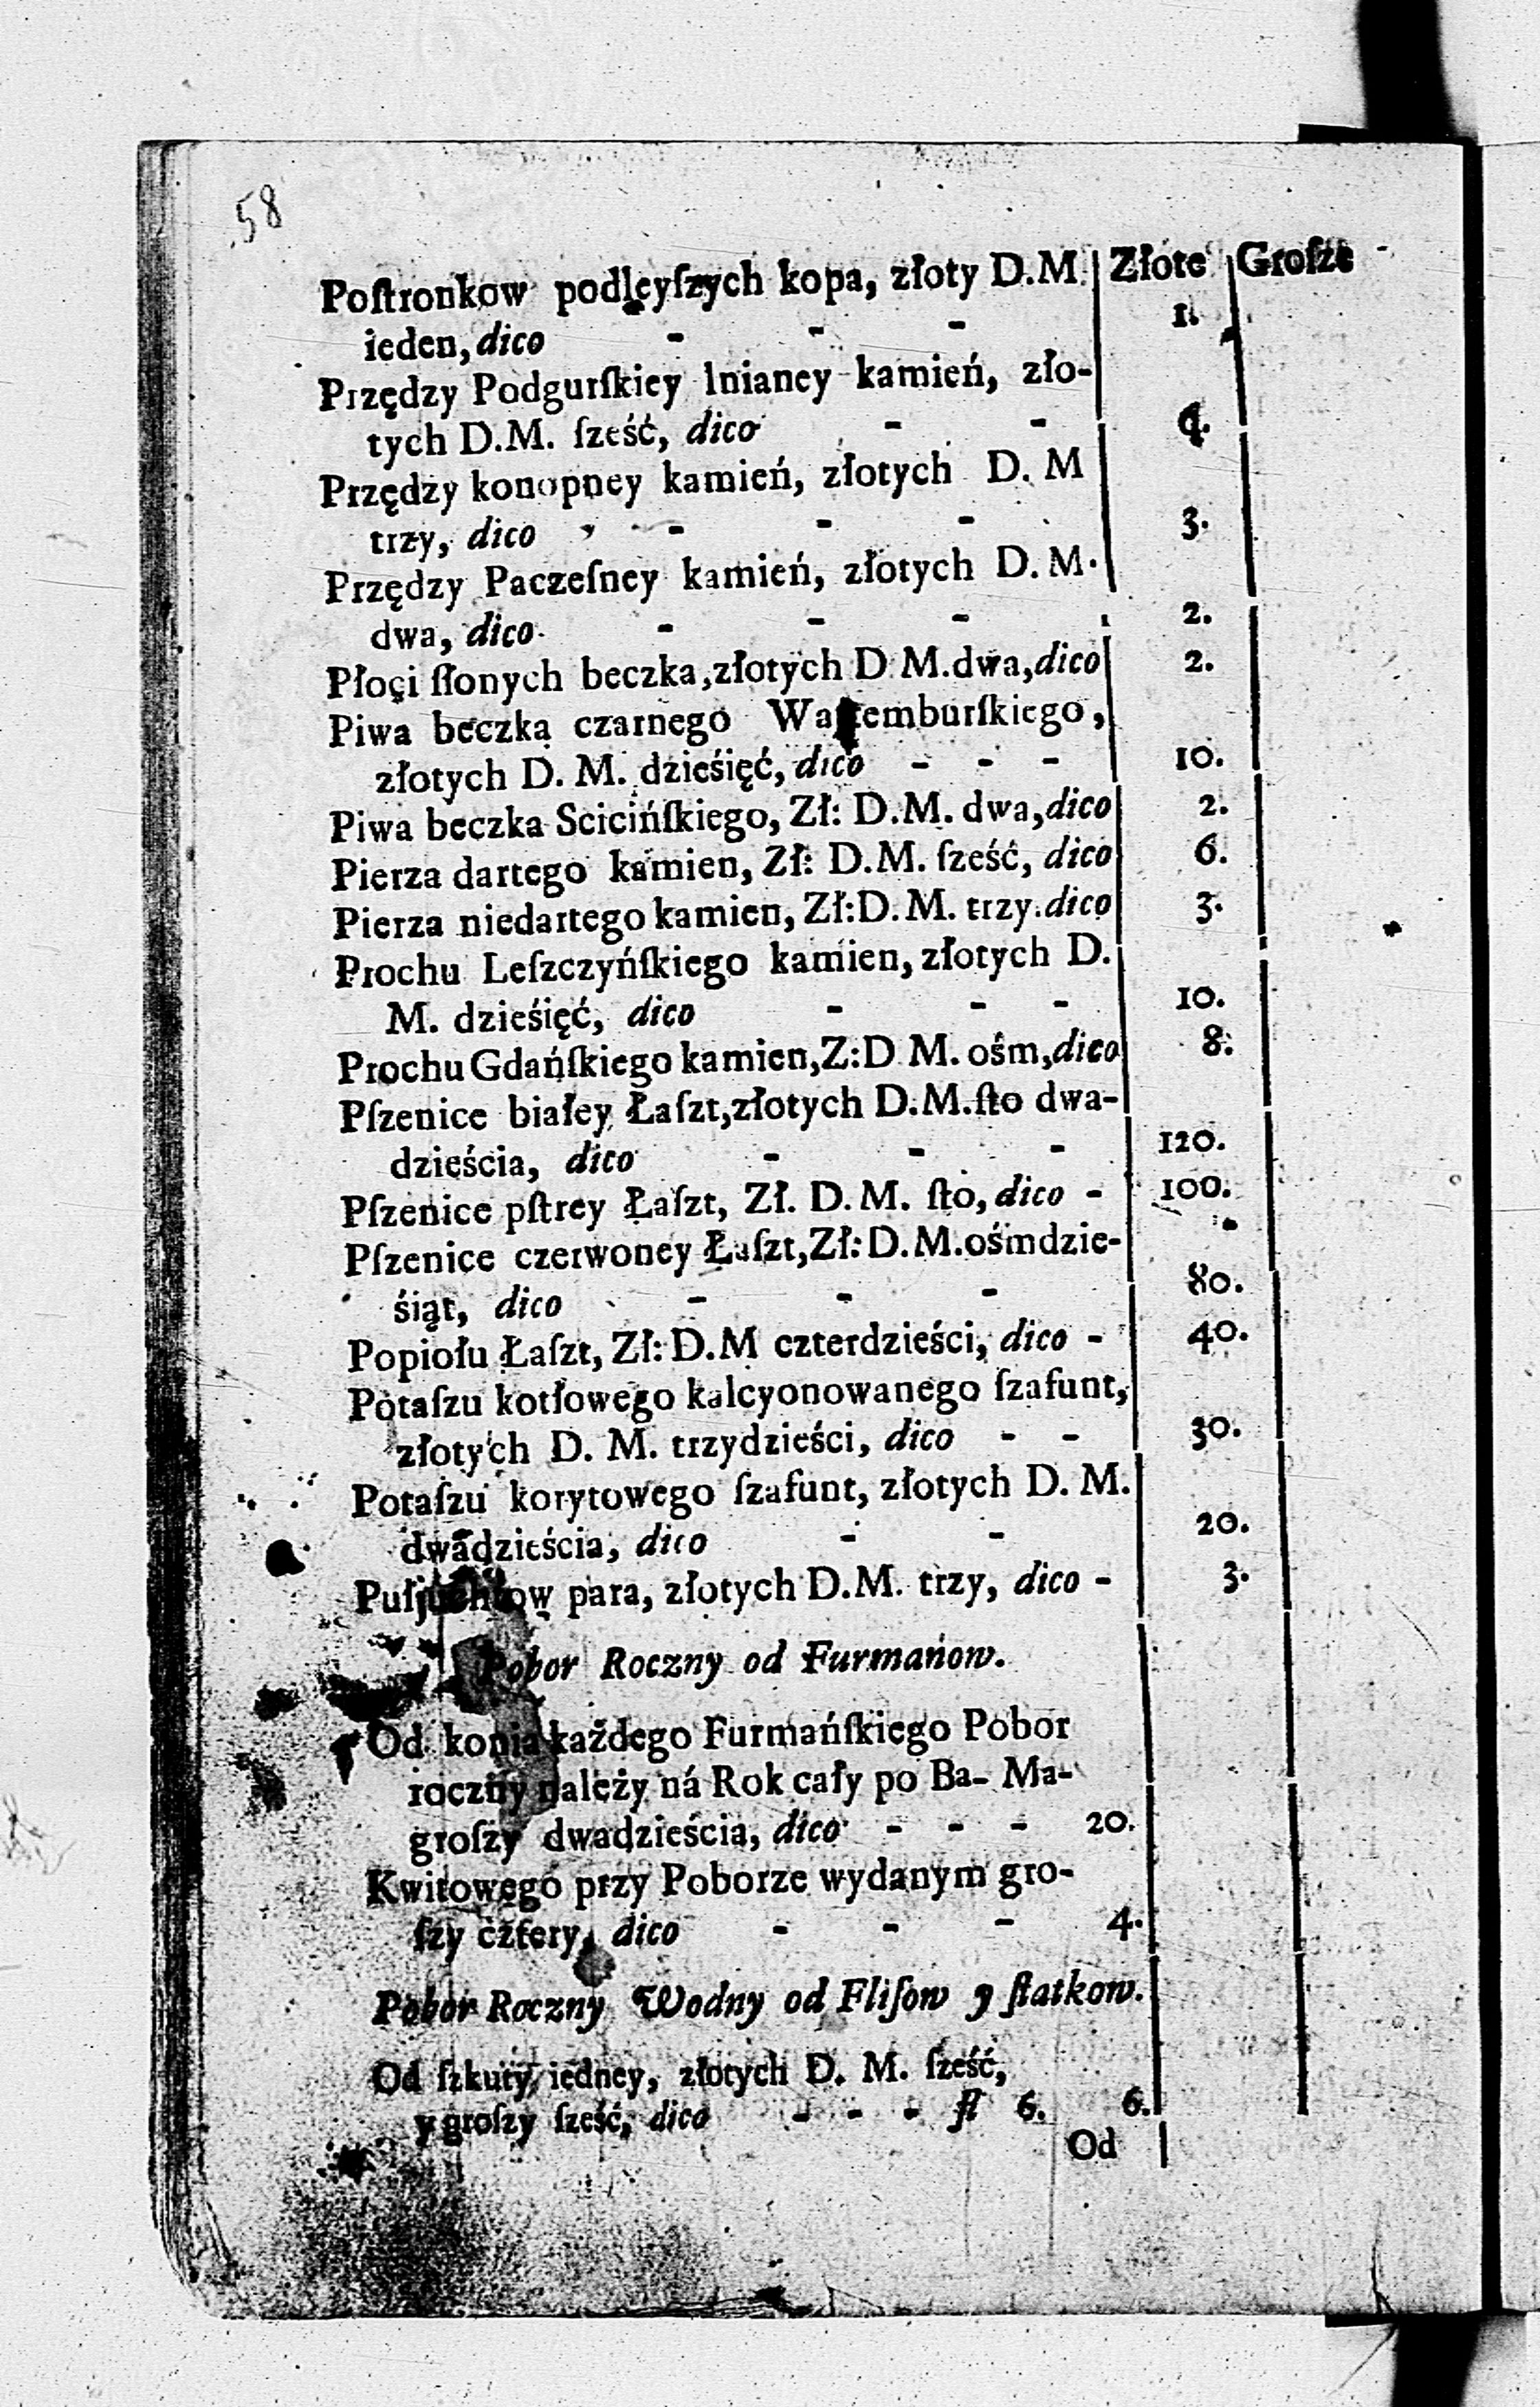 58
Poſtronkow podleyſzych kopa, złoty D.M. Złote Groſze
ieden, dico - - - 1.
Przędzy Podgurſkiey lnianey kamień, zło-
tych D.M. ſześć, dico - -
Przędzy konopney kamień, złotych D. M
trzy, dico - - - 3.
Przędzy Paczeſney kamień, złotych D. M.
dwa, dico - - - 2.
Płoci ſłonych beczka, złotych D M. dwa, dico 2.
Piwa beczka czarnego
złotych D. M. dzieśięć, dico - - - 10.
Piwa beczka Scicińſkiego, Zł: D.M. dwa, dico 2.
Pierza dartego kamien, Zł: D.M. ſześć, dico 6.
Pierza niedartego kamien, Zł: D. M. trzy. dico 3.
Prochu Leſzczyńſkiego kamien, złotych D.
M. dzieśięć, dico - - - 10.
Prochu Gdańſkiego kamien, Z: D M. ośm, dico 8.
Pſzenice białey Łaſzt, złotych D.M. ſto dwa-
dzieścia, dico - - - 120.
Pſzenice pſtrey Łaſzt, Zł. D. M. ſto, dico - 100.
Pſzenice czerwoney Łaſzt, Zł: D. M. ośmdzie-
śiąt, dico - - - 80.
Popiołu Łaſzt, Zł: D.M czterdzieści, dico - 40.
Potaſzu kotłowego kalcyonowanego ſzafunt,
złotych D. M. trzydzieści, dico - - 30.
Potaſzu korytowego ſzafunt, złotych D. M.
dwadzieścia, dico - - 20.
para, złotych D.M. trzy, dico - 3.
Pobor Roczny od Furmanow.
Od konia każdego Furmańſkiego Pobor
roczny należy ná Rok cały po Ba- Ma-
groſzy dwadzieścia, dico - - - 20.
Kwitowego przy Poborze wydanym gro-
ſzy cztery, dico - - - 4.
Pobor Roczny Wodny od Fliſow y ſtatkow.
Od ſzkuty iedney, złotych D. M. ſześć,
y groſzy ſześć, dico - - - fl 6. 6.
Od